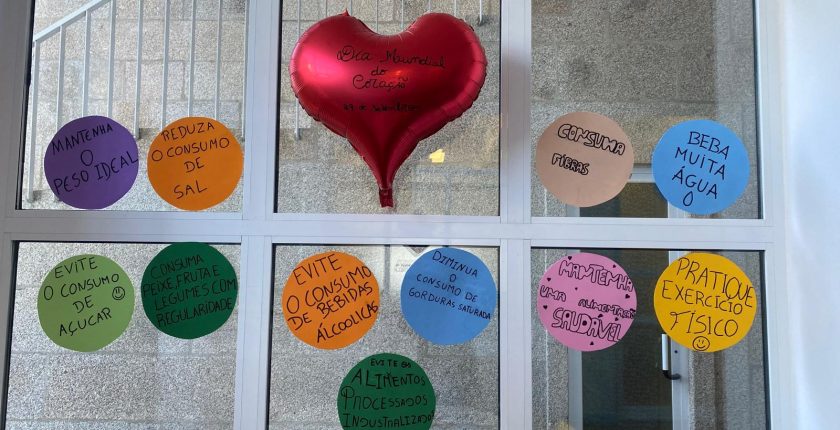 Dia Mundial
do
Coração
29 de setembro
MANTENHA
O
PESO IDEAL
REDUZA
O CONSUMO
DE
SAL
CONSUMA
FIBRAS
BEBA
MUITA
ÁGUA
EVITE
O CONSUMO
DE
AÇUCAR
CONSUMA
PEIXE, FRUTA E
LEGUMES COM
REGULARIDADE
EVITE
O CONSUMO
DE BEBIDAS
ÁLCOOLICAS
DIMINUA
O
CONSUMO DE
GORDURAS SATURADA
MANTENHA
UMA ALIMENTAÇÃO
SAUDÁVEL
PRATIQUE
EXERCÍCIO
FÍSICO
EVITE OS
ALIMENTOS
PROCESSADOS
INDUSTRIALIZADOS